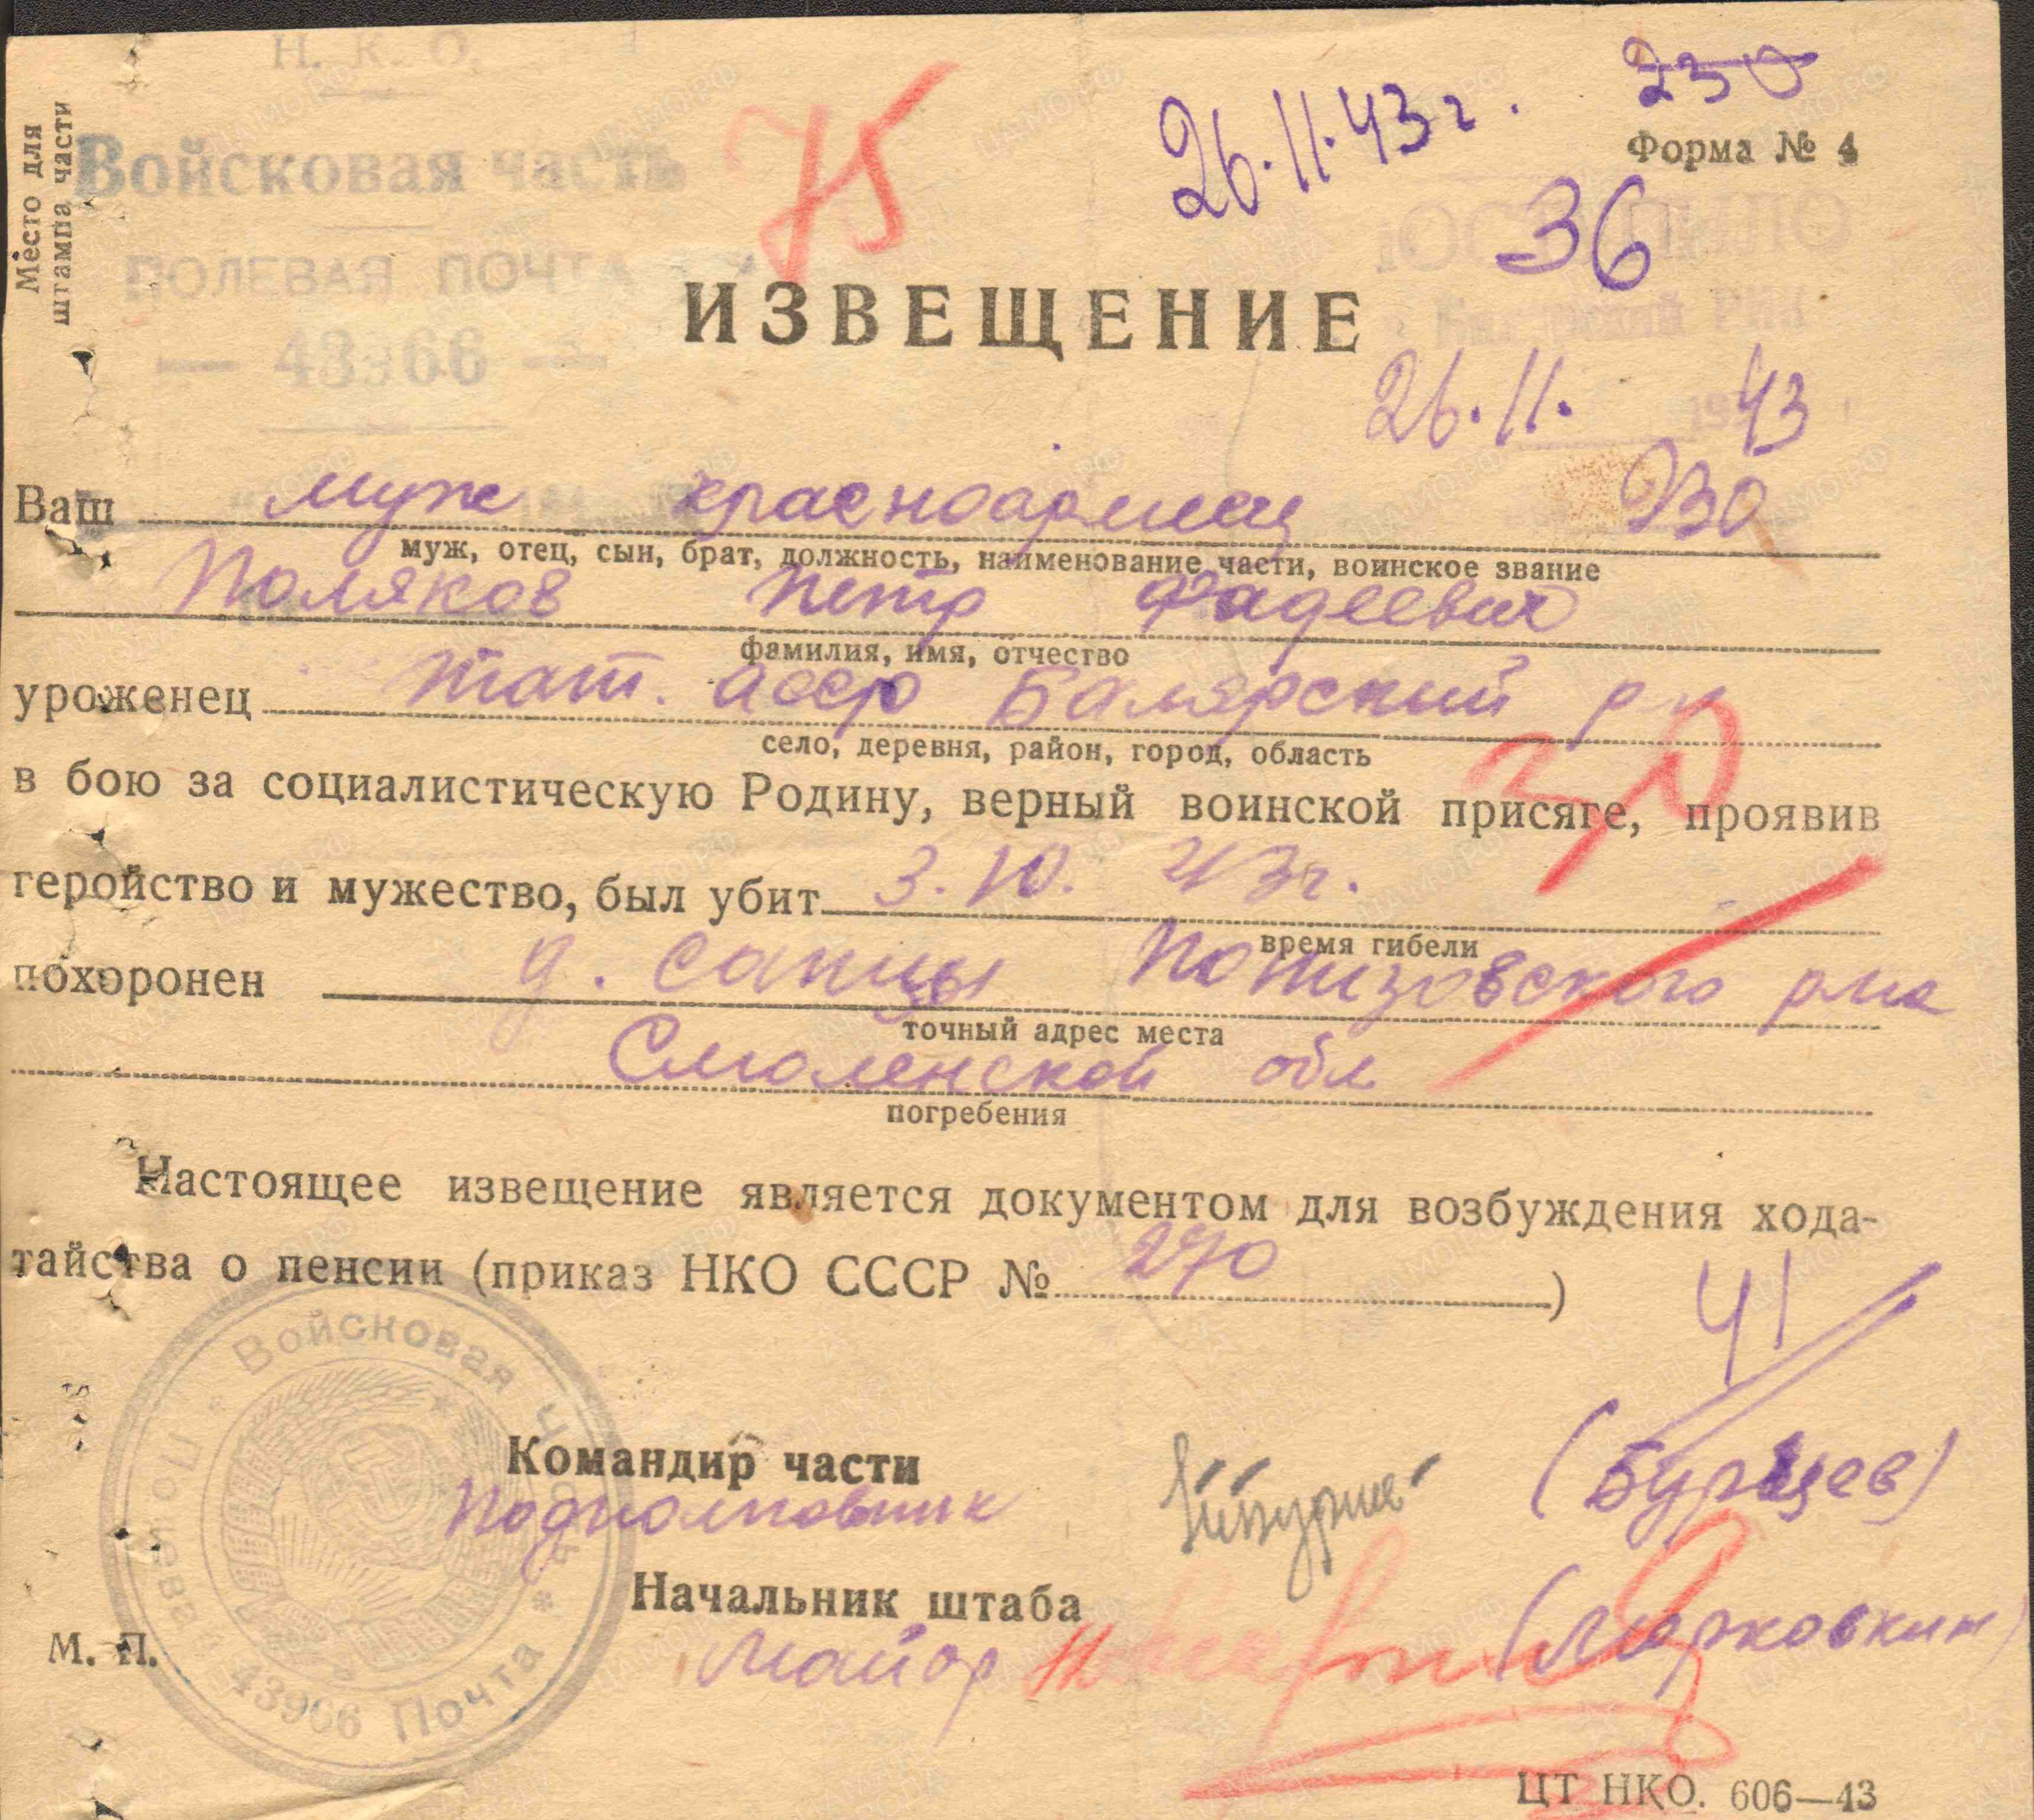 Н. К. О.
Место для
штампа части
Войсковая часть
ПОЛЕВАЯ ПОЧТА
— 43966 —
75
26.11.43 г.
230
Форма № 4
36
ИЗВЕЩЕНИЕ
26.11. 43
Ваш муж красноармеец 930
муж, отец, сын, брат, должность, наименование части, воинское звание
Поляков Петр Фадеевич
фамилия, имя, отчество
уроженец тат. асср Билярский р-н
село, деревня, район, город, область
в бою за социалистическую Родину, верный воинской присяге, проявив
геройство и мужество, был убит 3.10. 43г.
время гибели
похоронен д. Сапцы Понизовского р-на
точный адрес места
Смоленской обл
погребения
Настоящее извещение является документом для возбуждения хода-
тайства о пенсии (приказ НКО СССР № 270 )
41
Командир части
Подполковник (Бурцев)
Начальник штаба
Майор (Морковкин)
М. П.
Войсковая часть * Полевая Почта 43966 *
ЦТ НКО. 606—43